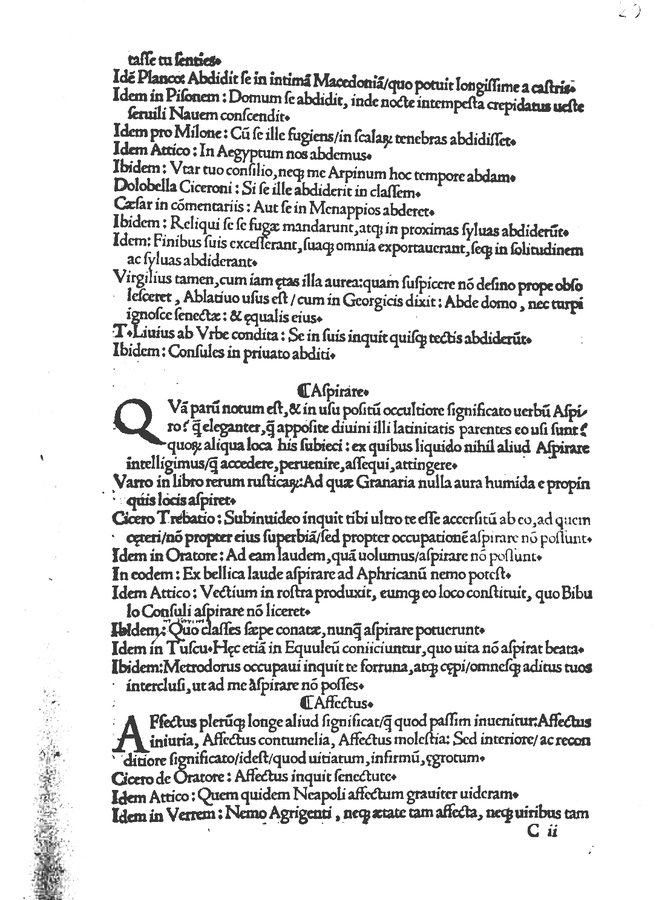 29
taſſe tu ſenties.
Idẽ Planco: Abdidit ſe in intimã Macedoniã/quo potuit longiſſime a caſtris.
Idem in Piſonem: Domum ſe abdidit, inde nocte intempeſta crepidatus ueſte
ſeruili Nauem conſcendit.
Idem pro Milone: Cũ ſe ille fugiens/in ſcalaꝝ tenebras abdidiſſet.
Idem Attico: In Aegyptum nos abdemus.
Ibidem: Vtar tuo conſilio, neqꝫ me Arpinum hoc tempore abdam.
Dolobella Ciceroni: Si ſe ille abdiderit in claſſem.
Cæſar in cõmentariis: Aut ſe in Menappios abderet.
Ibidem: Reliqui ſe ſe fugæ mandarunt, atqꝫ in proximas ſyluas abdiderũt.
Idem: Finibus ſuis exceſſerant, ſuaqꝫ omnia exportauerant, ſeqꝫ in ſolitudinem
ac ſyluas abdiderant.
Virgilius tamen, cum iam ętas illa aurea: quam ſuſpicere nõ deſino prope obſo
leſceret, Ablatiuo uſus eſt/cum in Georgicis dixit: Abde domo, nec turpi
ignoſce ſenectæ: & ęqualis eius.
T. Liuius ab Vrbe condita: Se in ſuis inquit quiſqꝫ tectis abdiderũt.
Ibidem: Conſules in priuato abditi.
⸿Aſpirare.
QVã parũ notum eſt, & in uſu poſitũ occultiore ſignificato uerbũ Aſpi/
ro? q̃ eleganter, q̃ appoſite diuini illi latinitatis parentes eo uſi ſunt?
quoꝝ aliqua loca his ſubieci: ex quibus liquido nihil aliud Aſpirare
intelligimus/q̃ accedere, peruenire, aſſequi, attingere.
Varro in libro rerum ruſticaꝝ: Ad quæ Granaria nulla aura humida e propin
quis locis aſpiret.
Cicero Trebatio: Subinuideo inquit tibi ultro te eſſe accerſitũ ab eo, ad quem
cęteri/nõ propter eius ſuperbiã/ſed propter occupationẽ aſpirare nõ poſſunt.
Idem in Oratore: Ad eam laudem, quã uolumus/aſpirare nõ poſſunt.
In eodem: Ex bellica laude aſpirare ad Aphricanũ nemo poteſt.
Idem Attico: Vectium in roſtra produxit, eumqꝫ eo loco conſtituit, quo Bibu
lo Conſuli aſpirare nõ liceret.
Ibidem: Quo claſſes ſæpe conatæ, nunq̃ aſpirare potuerunt.
Idem in Tuſcu. Hęc etiã in Equuleũ coniiciuntur, quo uita nõ aſpirat beata.
Ibidem: Metrodorus occupaui inquit te fortuna, atqꝫ cępi/omneſqꝫ aditus tuos
intercluſi, ut ad me aſpirare nõ poſſes.
⸿Affectus.
AFfectus plerũqꝫ longe aliud ſignificat/q̃ quod paſſim inuenitur: Affectus
iniuria, Affectus contumelia, Affectus moleſtia: Sed interiore/ac recon
ditiore ſignificato/ideſt/quod uitiatum, infirmũ, ęgrotum.
Cicero de Oratore: Affectus inquit ſenectute.
Idem Attico: Quem quidem Neapoli affectum grauiter uideram.
Idem in Verrem: Nemo Agrigenti, neqꝫ ætate tam affecta, neqꝫ uiribus tam
C ii